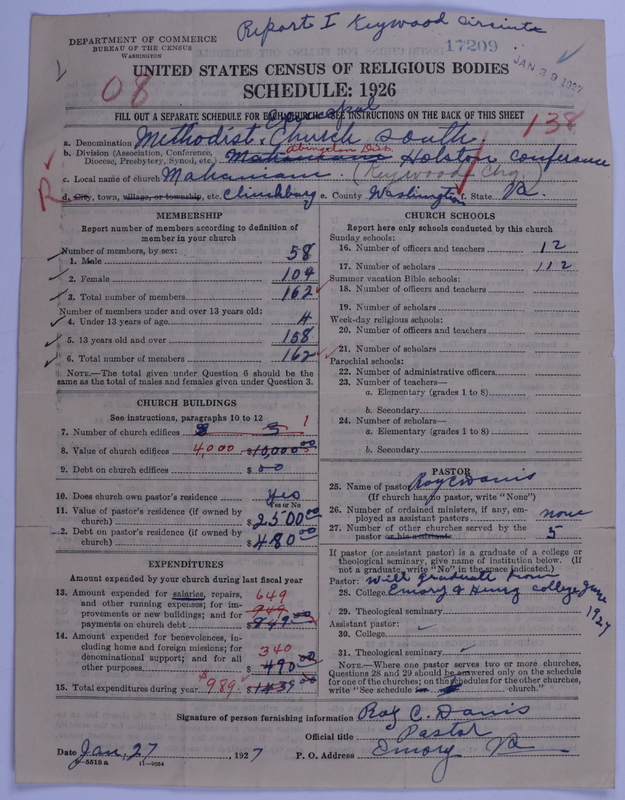 Report I Keywood Circuit
DEPARTMENT OF COMMERCE
BUREAU OF THE CENSUS
WASHINGTON
17209
JAN 29 1927
08
UNITED STATES CENSUS OF RELIGIOUS BODIES
SCHEDULE: 1926
FILL OUT A SEPARATE SCHEDULE FOR EACH CHURCH. SEE INSTRUCTIONS ON THE BACK OF THIS SHEET
138
Episcopal
a. Denomination Methodist Church South
b. Division (Association, Conference, Diocese, Presbytery, Synod, etc.) Mahanaim Abingdon Dist. Holston Conference
c. Local name of church Mahanaim (Keywood Chg.)
R
d. City, town, village, or township, etc. Clinchburg e. County Washington f. State Va.
MEMBERSHIP
Report number of members according to definition of
member in your church
Number of members, by sex:
1. Male 58
2. Female 104
3. Total number of members 162
Number of members under and over 13 years old:
4. Under 13 years of age 4
5. 13 years old and over 158
6. Total number of members 162
NOTE.—The total given under Question 6 should be the
same as the total of males and females given under Question 3.
CHURCH BUILDINGS
See instructions, paragraphs 10 to 12
7. Number of church edifices 5 1
8. Value of church edifices 4,000 $10,000 00
9. Debt on church edifices $ 00
10. Does church own pastor's residence yes
Yes or No
11. Value of pastor's residence (if owned by
church) $2500 00
12. Debt on pastor's residence (if owned by
church) $480 00
EXPENDITURES
Amount expended by your church during last fiscal year
13. Amount expended for salaries, repairs, 649
and other running expenses; for im- 949
provements or new buildings; and for
payments on church debt $949 00
14. Amount expended for benevolences, in-
cluding home and foreign missions; for 340
denominational support; and for all
other purposes $490 00
15. Total expenditures during year $989 $1439 00
CHURCH SCHOOLS
Report here only schools conducted by this church
Sunday schools:
16. Number of officers and teachers 12
17. Number of scholars 112
Summer vacation Bible schools:
18. Number of officers and teachers
19. Number of scholars
Week-day religious schools:
20. Number of officers and teachers
21. Number of scholars
Parochial schools:
22. Number of administrative officers
23. Number of teachers—
a. Elementary (grades 1 to 8)
b. Secondary
24. Number of scholars—
a. Elementary (grades 1 to 8)
b. Secondary
PASTOR
25. Name of pastor Roy C Davis
(If church has no pastor, write "None")
26. Number of ordained ministers, if any, em-
ployed as assistant pastors none
27. Number of other churches served by the
pastor or his assistants 5
If pastor (or assistant pastor) is a graduate of a college or
theological seminary, give name of institution below. (If
not a graduate, write "No" in the space indicated.)
Pastor: Will graduate from
28. College Emory & Henry college June
29. Theological seminary 1927
Assistant pastor:
30. College
31. Theological seminary
NOTE.—Where one pastor serves two or more churches,
Questions 28 and 29 should be answered only on the schedule
for one of the churches; on the schedules for the other churches,
write "See schedule for church."
Signature of person furnishing information Roy C. Davis
Official title Pastor
Date Jan. 27, 1927 P. O. Address Emory Va
5518 a 11—9564